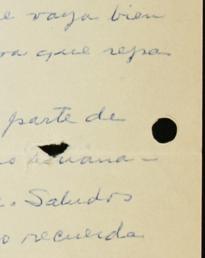 e vaya bien
ra que sepa
parte de
. Saludos
o recuerda